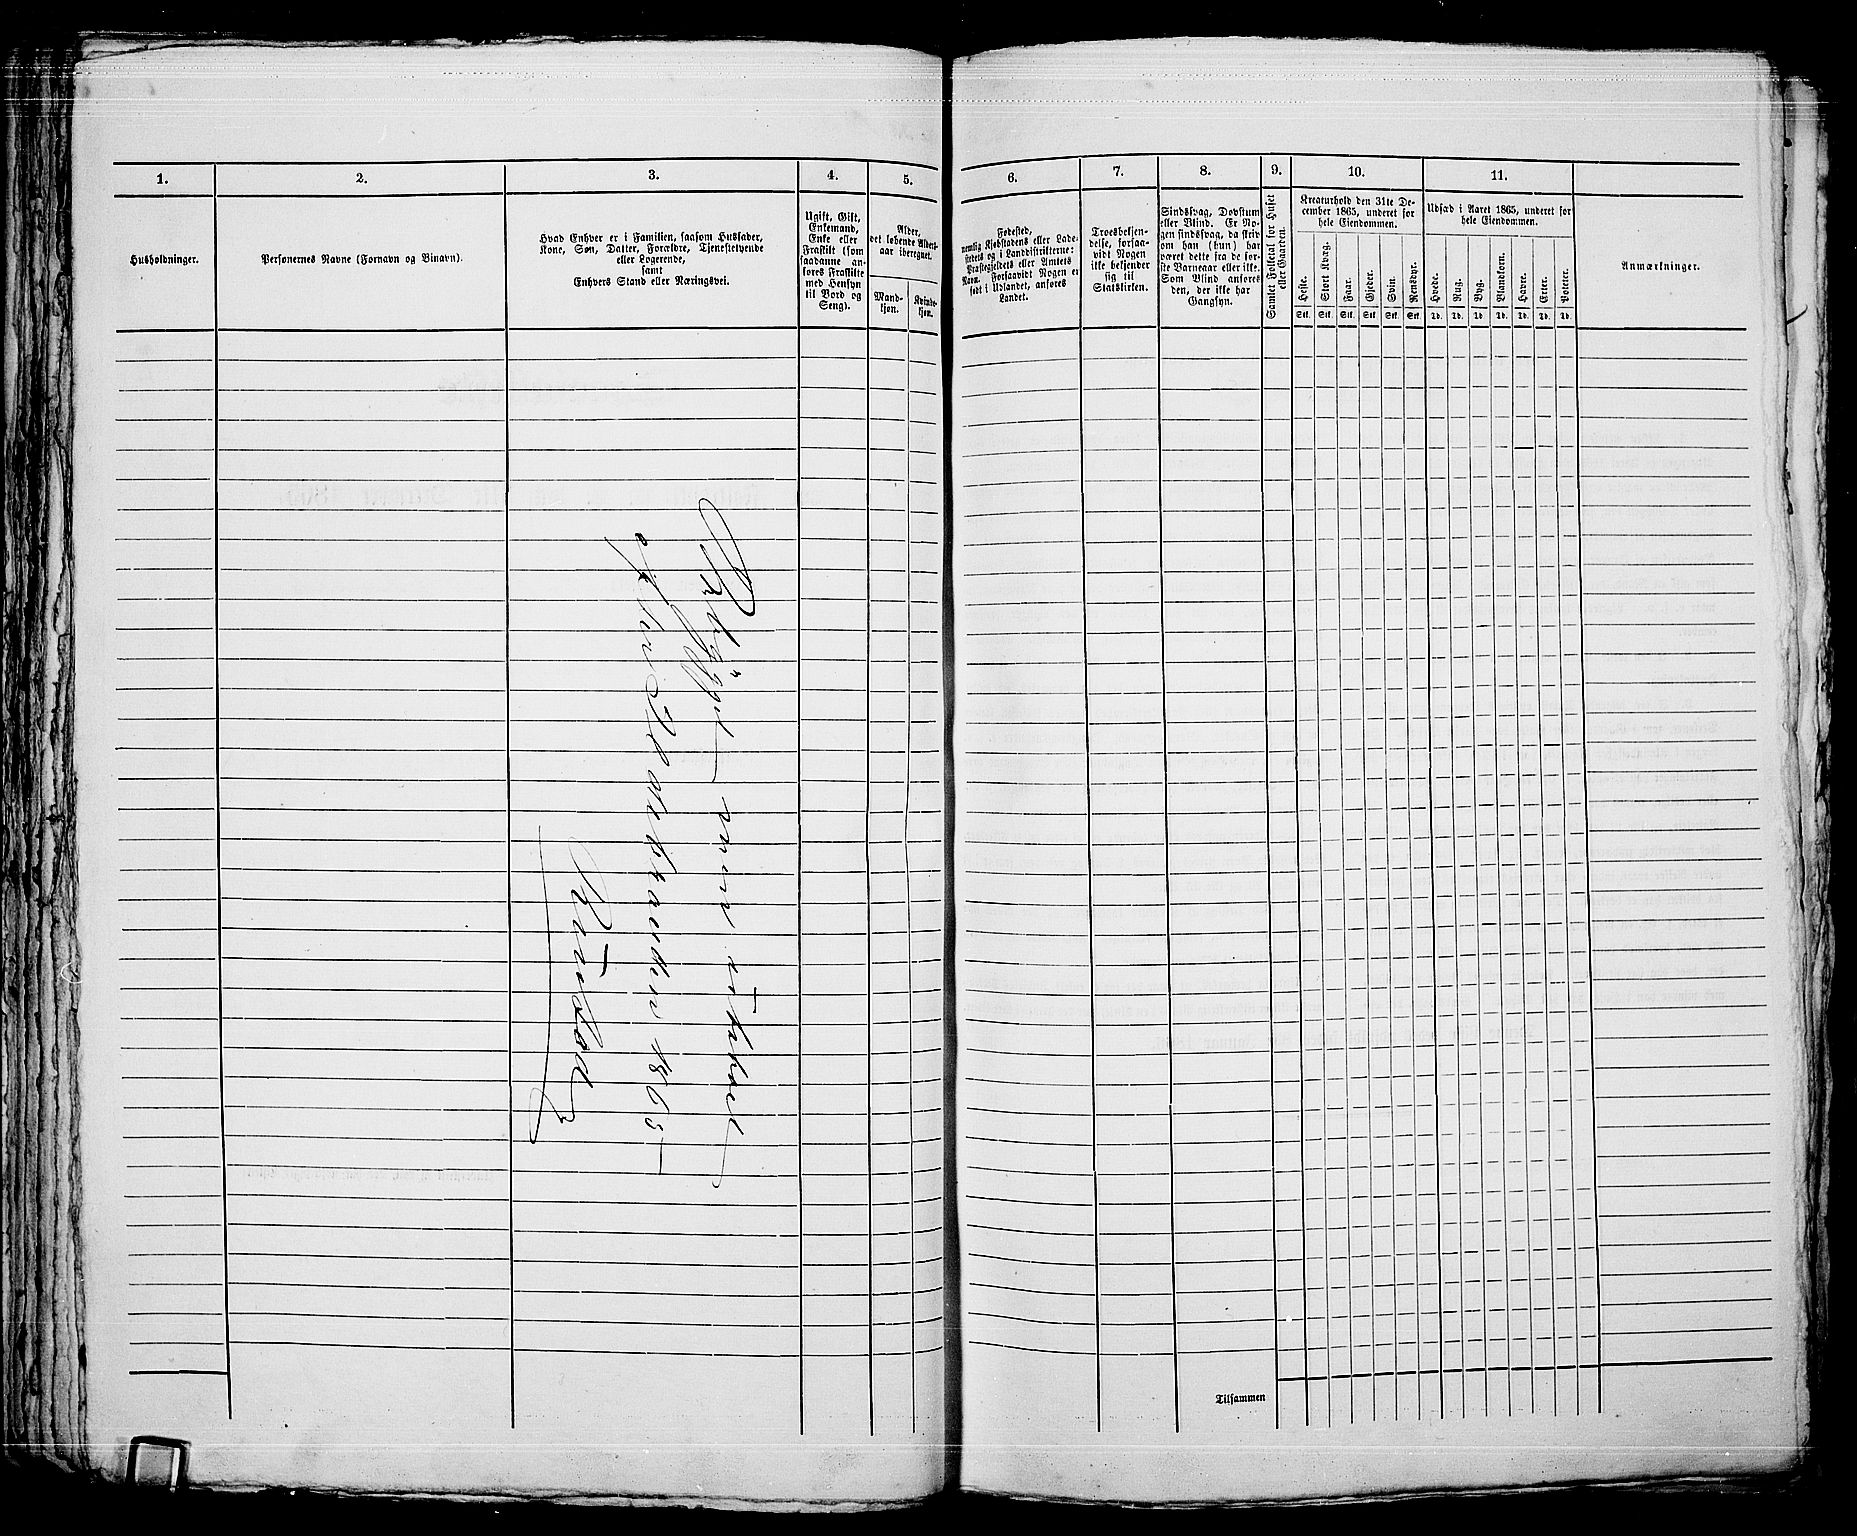 1.
2.
3.
4.
5.
6.
7.
8.
9.
10.
11.
Husholdninger.
Personernes Navne (Fornavn og Binavn).
Hvad Enhver er i Familien, saasom Husfader,
Kone, Søn, Datter, Forældre, Tjenestetyende
eller Logerende,
samt
Enhvers Stand eller Næringsvei.
Ugift, Gift,
Enkemand,
Enke eller
Fraskilt (som
saadanne an-
føres Fraskilte
med Hensyn
til Bord og
Seng).
Alder,
det løbende Alders-
aar iberegnet.
Mand-
kjøn.
Kvinde-
kjøn.
Fødested,
nemlig Kjøbstadens eller Lade-
stedets og i Landdistrikterne:
Præstegjeldets eller Amtets
Navn. Forsaavidt Nogen er
født i Udlandet, anføres
Landet.
Troesbekjen-
delse, forsaa-
vidt Nogen
ikke bekjender
sig til
Statskirken.
Sindssvag, Døvstum
eller Blind. Er No-
gen sindssvag, da skriv
om han (hun) har
været dette fra de før-
ste Barneaar eller ikke.
Som Blind anføres
den, der ikke har
Gangsyn.
Samlet Folketal for Huset
eller Gaarden.
Kreaturhold den 31te De-
cember 1865, underet for
hele Eiendommen.
Heste.
Stort Kvæg.
Faar.
Gjeder.
Svin.
Rensdyr.
Stk. Stk. Stk. Stk. Stk. Stk.
Udsæd i Aaret 1865, underet for
hele Eiendommen.
Hvede.
Rug.
Byg.
Blandkorn.
Havre.
Erter.
Poteter.
Td. Td. Td. Td. Td. Td. Td.
Anmærkninger.
men
1865
Tilsammen